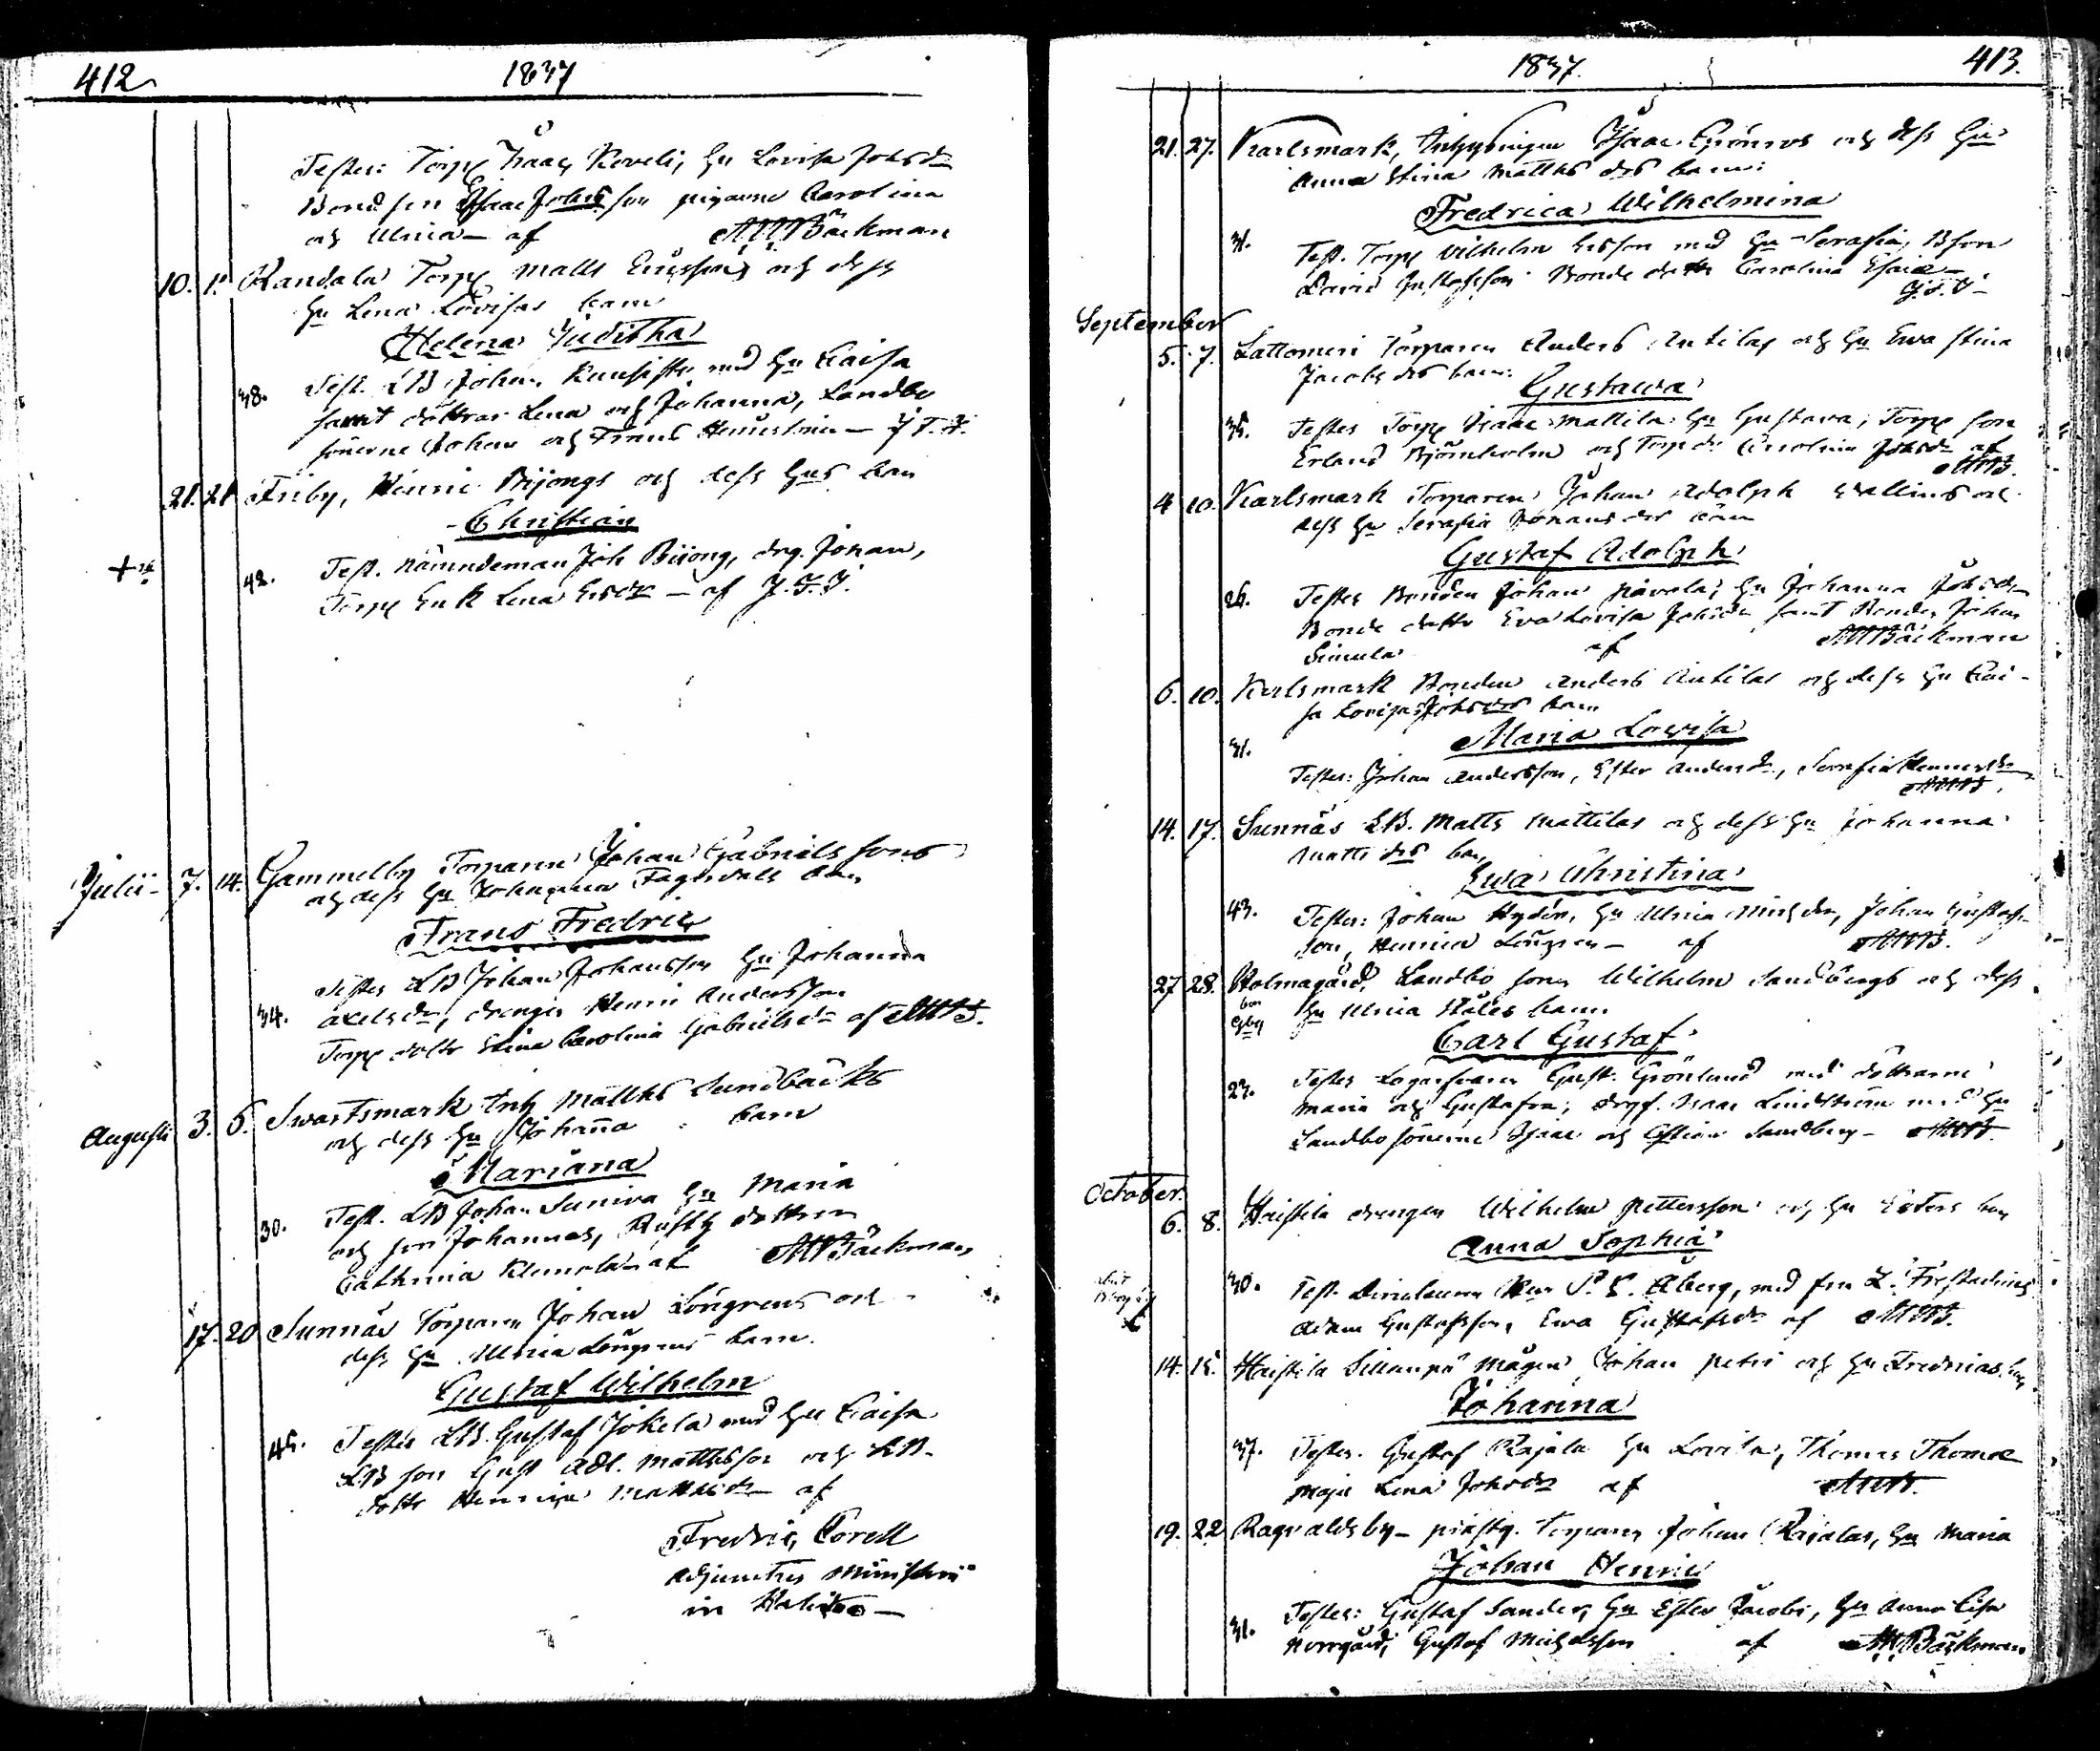 412
1837
Testes: Torp Isaac Koveli, Hu Lovisa Johsdr
Bond son Isaac Johsson pigorne Carolina
och Ulrica - af AWBäckman
10. 1. Kandala Torp Matts Ericssons och dess
Hu Lena Lovisas barn
Helena Juditha
38. Test. LB Johan Kunsisto med Hu Caisa
samt döttrar Lena och Johanna, Landbo
sönerne Johan och Frans - J.T.
21. 21 Friby, Henric Bijongs och dess Hus barn
Christian
42. Test. Nämndeman Joh Biiong, drg. Johan,
Torp Enk Lena Ersdr - af J.T.J.
Julii - 7. 14. Gammelby Torparen Johan Gabrielssons
och dess Hu Johanna Fagervalls barn
Frans Fredric
Testes LB Johan Johansson Hu Johanna
34. Axelsdr, drengen Henric Andersson
Torp dottr Stina Carolina Gabrielsdr af AWB.
Augusti 3. 6. Swartsmark Inh Matths Sundbäcks
och dess Hu Johanna barn
Mariana
30. Test. LB Johan Suniva Hu Maria
och son Johannes, Rusth dottren
Cathrina Klemola af AWBäckman
17. 20 Sunnäs Torparen Johan Löngrens och
dess Hu Ulrica Löngrens barn.
Gustaf Wilhelm
45. Testes LB Gustaf Jokela med Hu Caisa
LB son Gust Adl. Matthsson och LB.
dottr Henrica Matthsdr af
Fredric Corell
Adjunctus Ministerii
in
1837.
413.
21. 27. Karlsmark, Inhysingen Isaac Grönros och dess Hu
Anna Stina Matths drs barn:
Fredrica Wilhelmina
31. Test. Torp Wilhelm Ersson med Hu Serafia, Bson
David Gustafsson Bonde dottr Carolina Esaiæ -
J.T.J -
September
5. 7. Lattomeri Torparen Anders Antilas och Hu Ewa Stina
Jacobs drs barn:
Gustawa
35. Testes Torp Isaac Mattila Hu Gustava; Torp son
Erland Björnholm och Torp dr Carolina Johsdr af
AWB.
4 10. Karlsmark Torparen Johan Adolph Wallins och
dess Hu Serafia Johans drs barn
Gustaf Adolph
26. Testes Bonden Johan Påvola; Hu Johanna Johsdr
Bonde dottr Eva Lovisa Johsdr samt Bonden Johan
Simula af AWBäckman
6. 10. Karlsmark Bonden Anders Antilas och dess Hu Cai-
sa Lovisa Johsdrs barn
Maria Lowisa
31.
Testes: Johan Andersson, Ester Andersdr, Serafia Henricsdr
AWB.
14. 17. Sunnäs LB. Matts Mattilas och dess Hu Johanna
Matts drs barn
Ewa Christina
43. Testes: Johan Hydén, Hu Ulrica Michsdr, Johan Gustafs-
son, Henrica Löngren - af AWB.
27 28. Holmagård, Landbo sonen Wilhelm Sandbergs och dess
Hu Ulrica Ståles barn
Carl Gustaf
23. Testes Gust. Grönlund med döttrarne
Maria och Gustafva; Isaac Lindström med Hu
Landbo sönerne Isaac och Sandberg - AWB.
October.
6. 8. Haistila drengen Wilhelm Pettersson och Hu Esters barn
Anna Sophia
30. Test. Herr P. E. Åberg, med fru L.
Adam Gustafsson, Ewa Gustafsdr af AWB.
14. 15. Haistila Sillanpä mågen Johan Petri och Hu Fredricas barn
Johanna
37. Testes. Gustaf Rajala Hu Lovisa, Thomas Thomæ
Maja Lena Johsdr af AWB.
19. 22 Ragvaldsby - Torparen Johan Rajalas, Hu Maria
Johan Henric
31. Testes: Gustaf Sander, Hu Ester Jacobi, Hu Anna Lisa
Norrgård, Gustaf Michelsson af AWBäckman